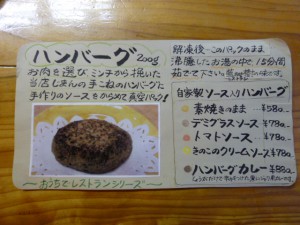 ハンバーグ 200g
お肉を選び ミンチから挽いた
当店じまんの手ごねのハンバーグに
手作りのソースをからめて真空パック!
~おうちでレストランシリーズ~
解凍後…このパックのまま
沸騰したお湯の中で15分間
茹でて下さい。
自家製ソース入りハンバーグ
素焼きのまま ¥580
デミグラスソース ¥780
トマトソース ¥780
きのこのクリームソース ¥780
ハンバーグカレー ¥880